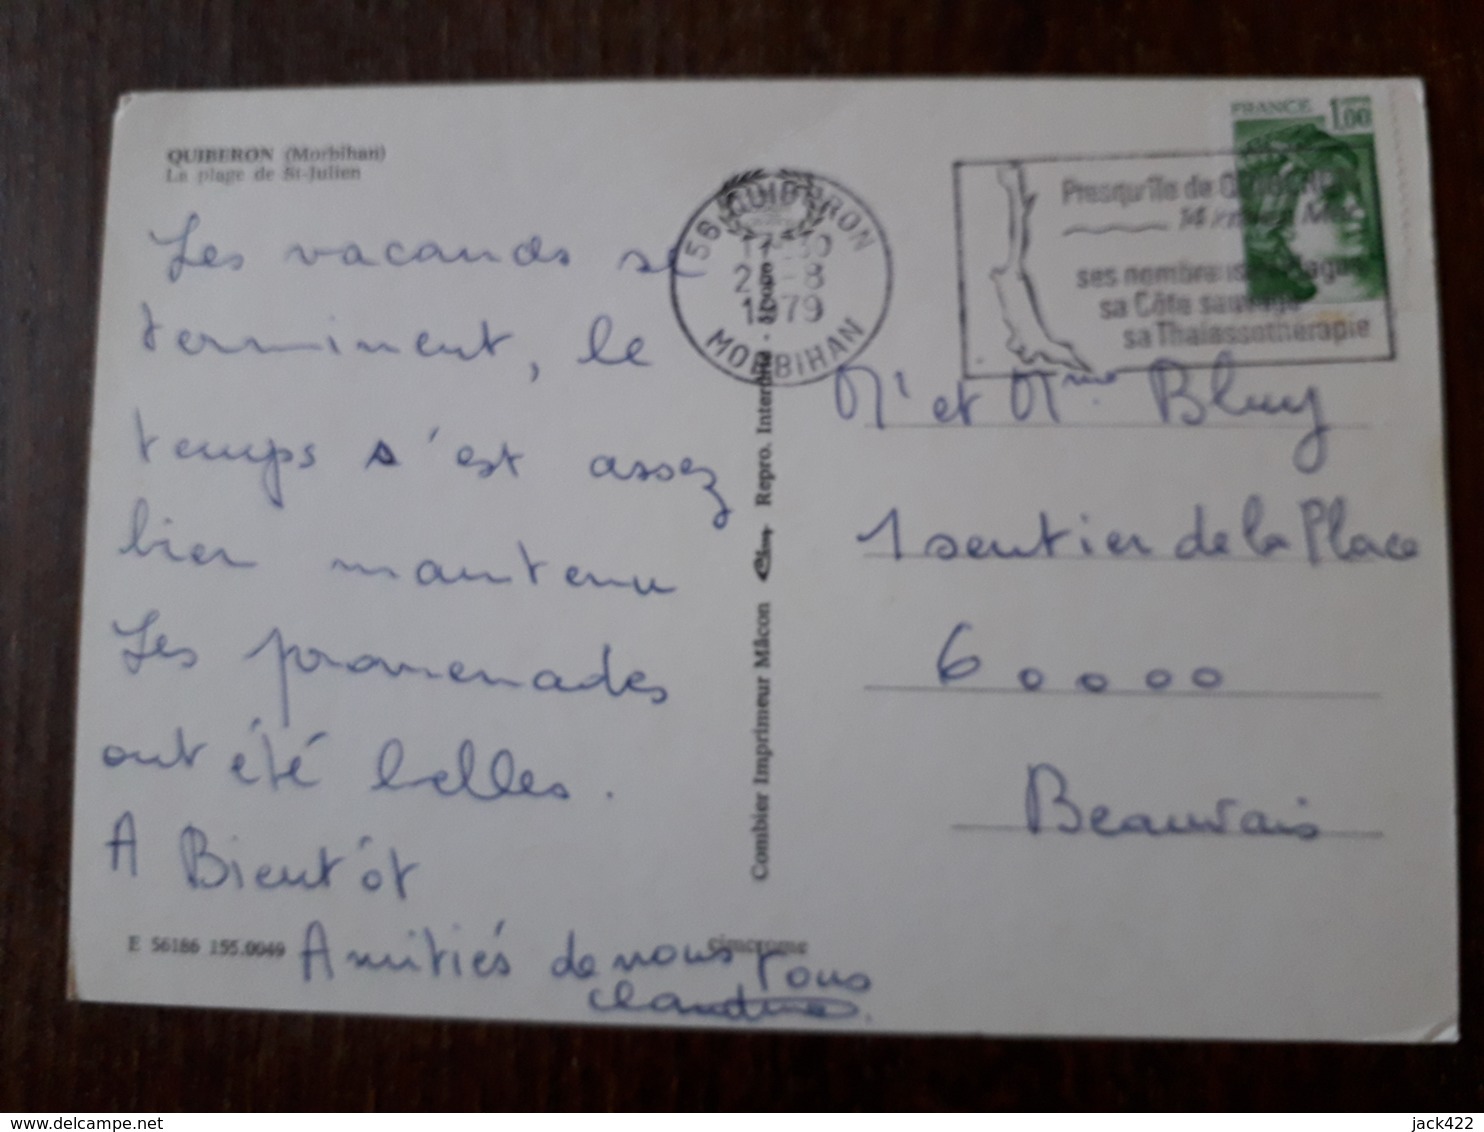 QUIBERON (Morbihan)
La plage de St-Julien
Les vacances se
terminent, le
temps s'est assez
bien maintenu
Les promenades
ont été belles.
A Bientôt
Amitiés de nous tous
Claudine.
E 56186 155.0049
cimcrome
Combier Imprimeur Mâcon Repro. Interdite
56 QUIBERON
8
1979
MORBIHAN
Presqu'île de QUIBERON
14 km en Mer
ses nombreuses Plages
sa Côte sauvage
sa Thalassothérapie
FRANCE 1,00
Mr et Mme Bluy
1 sentier de la Place
60000
Beauvais
delcampe.net
jack422